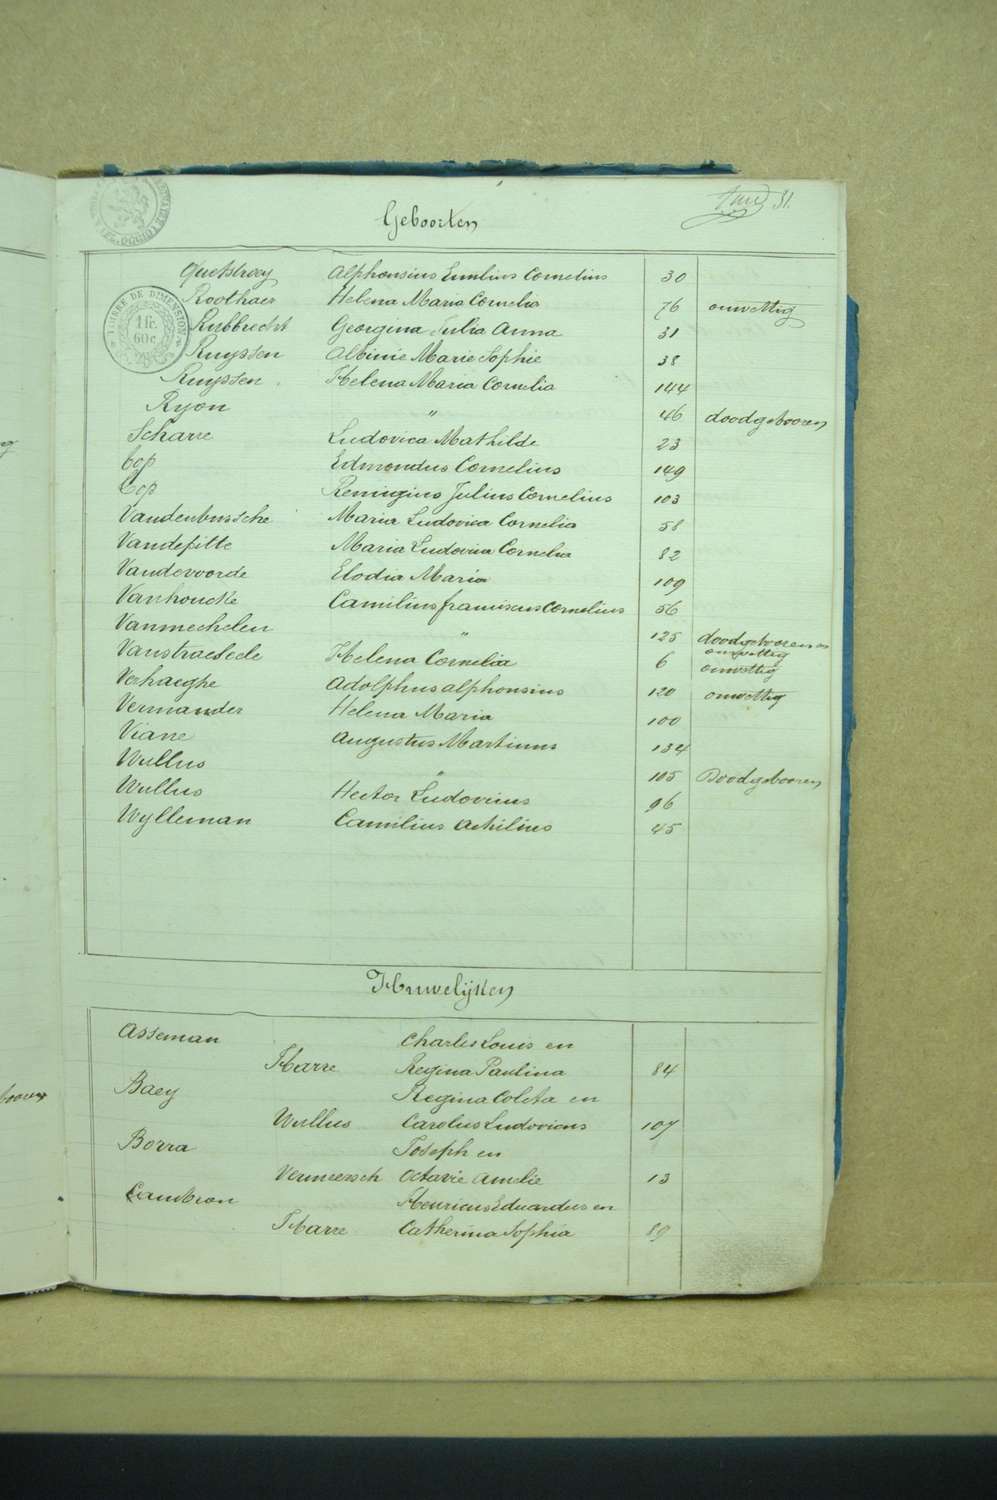 31.
Geboorten
Quetstroey Alphonsius Emilius Cornelius 30
Roothaer Helena Maria Cornelia 76 onwettig
TIMBRE DE DIMENSION
1 fr. 60 c.
Rubbrecht Georgina Julia Anna 31
Ruyssen Albinie Marie Sophie 38
Ruyssen Helena Maria Cornelia 144
Ryon " 46 doodgebooren
Scharre Ludovica Mathilde 23
Top Edmondus Cornelius 149
Top Remigius Julius Cornelius 103
Vandenbussche Maria Ludovica Cornelia 58
Vandefitte Maria Ludovica Cornelia 82
Vandevoorde Elodia Maria 109
Vanhoucke Camilius franciscus Cornelius 56
Vanmechelen " 125 doodgebooren en onwettig
Vanstraeseele Helena Cornelia 6 onwettig
Verhaeghe Adolphus alphonsius 120 onwettig
Vermander Helena Maria 100
Viane Augustus Martinus 134
Wullus " 105 Doodgebooren
Wullus Hector Ludovicus 96
Wylleman Camilius Achilius 45
Huwelijken
Asseman Charles Louis en
Harre Regina Paulina 84
Baey Regina Coleta en
Wullus Carolus Ludovicus 107
Borra Joseph en
Vermeersch Octavie Amelie 13
Cambron Henricus Eduardus en
Harre Catherina Sophia 89